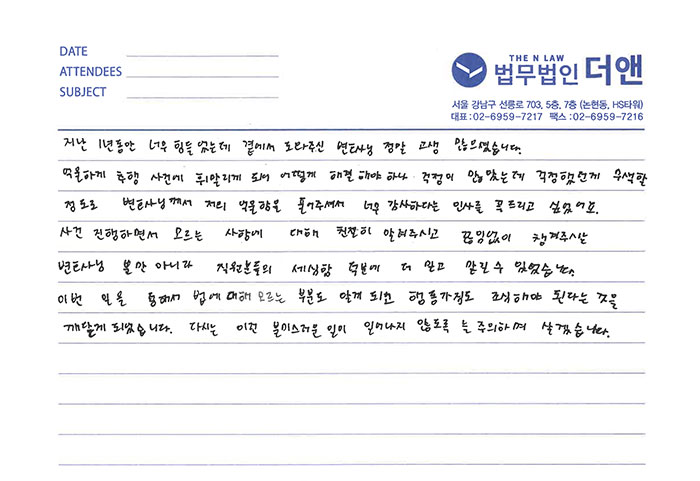 DATE
ATTENDEES
SUBJECT
THE N LAW
법무법인 더앤
서울 강남구 선릉로 703, 5층, 7층 (논현동, HS타워)
대표 : 02-6959-7217 팩스 : 02-6959-7216
지난 1년동안 너무 힘들었는데 곁에서 도와주신 변호사님 정말 고생 많으셨습니다.
억울하게 추행 사건에 휘말리게 되어 어떻게 해결해야하나 걱정이 많았는데 걱정했던게 무색할
정도로 변호사님께서 저의 억울함을 풀어주셔서 너무 감사하다는 인사를 꼭 드리고 싶었어요.
사건 진행하면서 모르는 사항에 대해 친절히 알려주시고 끊임없이 챙겨주시는
변호사님 뿐만 아니라 직원분들의 세심함 덕분에 더 믿고 맡길 수 있었습니다.
이번 일을 통해서 법에 대해 모르는 부분도 알게 되었고 행동가짐도 조심해야 된다는 것을
깨닫게 되었습니다. 다시는 이런 불미스러운 일이 일어나지 않도록 늘 주의하며 살겠습니다.